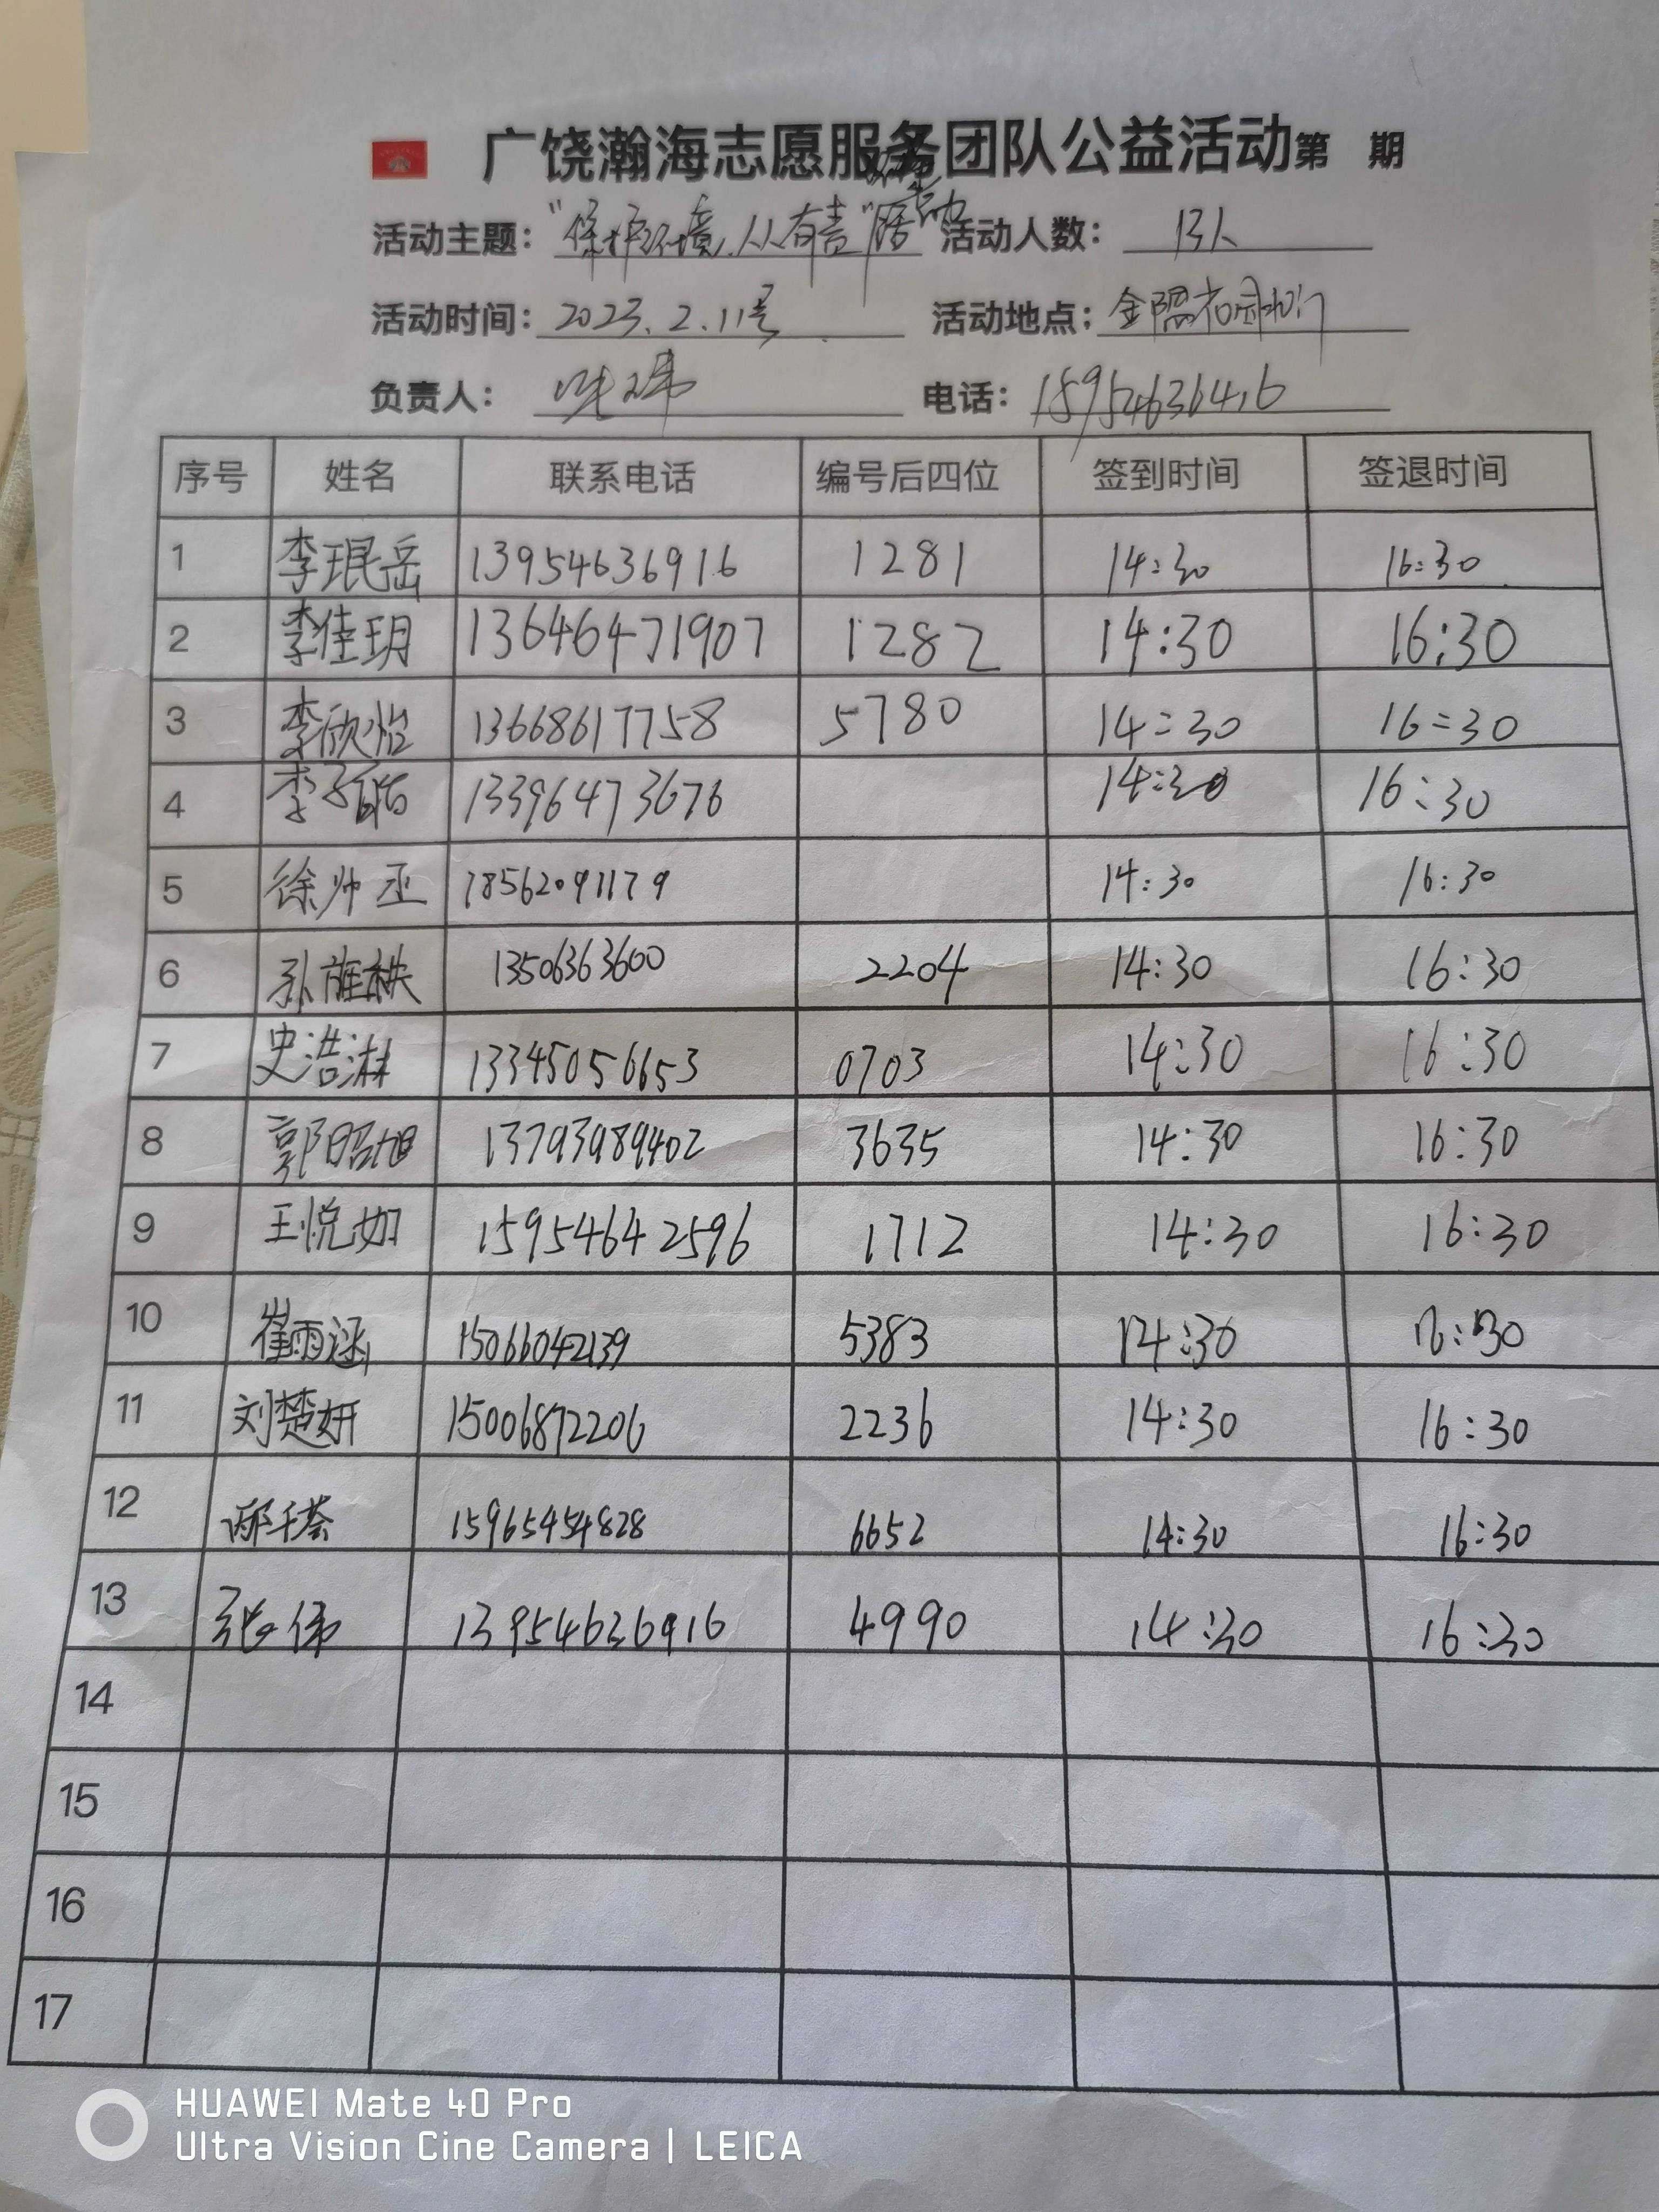 广饶瀚海志愿服务团队公益活动第 期
活动主题："保护环境,人人有责"活动 活动人数：13人
活动时间：2023.2.11号 活动地点；金盟花园北门
负责人： 电话：
序号 姓名 联系电话 编号后四位 签到时间 签退时间
1 李琨岳 13954636916 1281 14:30 16:30
2 李佳玥 13646471907 1282 14:30 16:30
3 李欣怡 13668617758 5780 14:30 16:30
4 李子皓 13396473676 14:30 16:30
5 徐帅丞 18562091179 14:30 16:30
6 孙 13506363600 2204 14:30 16:30
7 史浩淋 13345056653 0703 14:30 16:30
8 郭昭旭 13793989402 3635 14:30 16:30
9 王悦如 15954642596 1712 14:30 16:30
10 崔雨涵 15066042139 5383 14:30 16:30
11 刘楚妍 15006872206 2236 14:30 16:30
12 15965454828 6652 14:30 16:30
13 张伟 13954636916 4990 14:30 16:30
14
15
16
17
HUAWEI Mate 40 Pro
Ultra Vision Cine Camera | LEICA